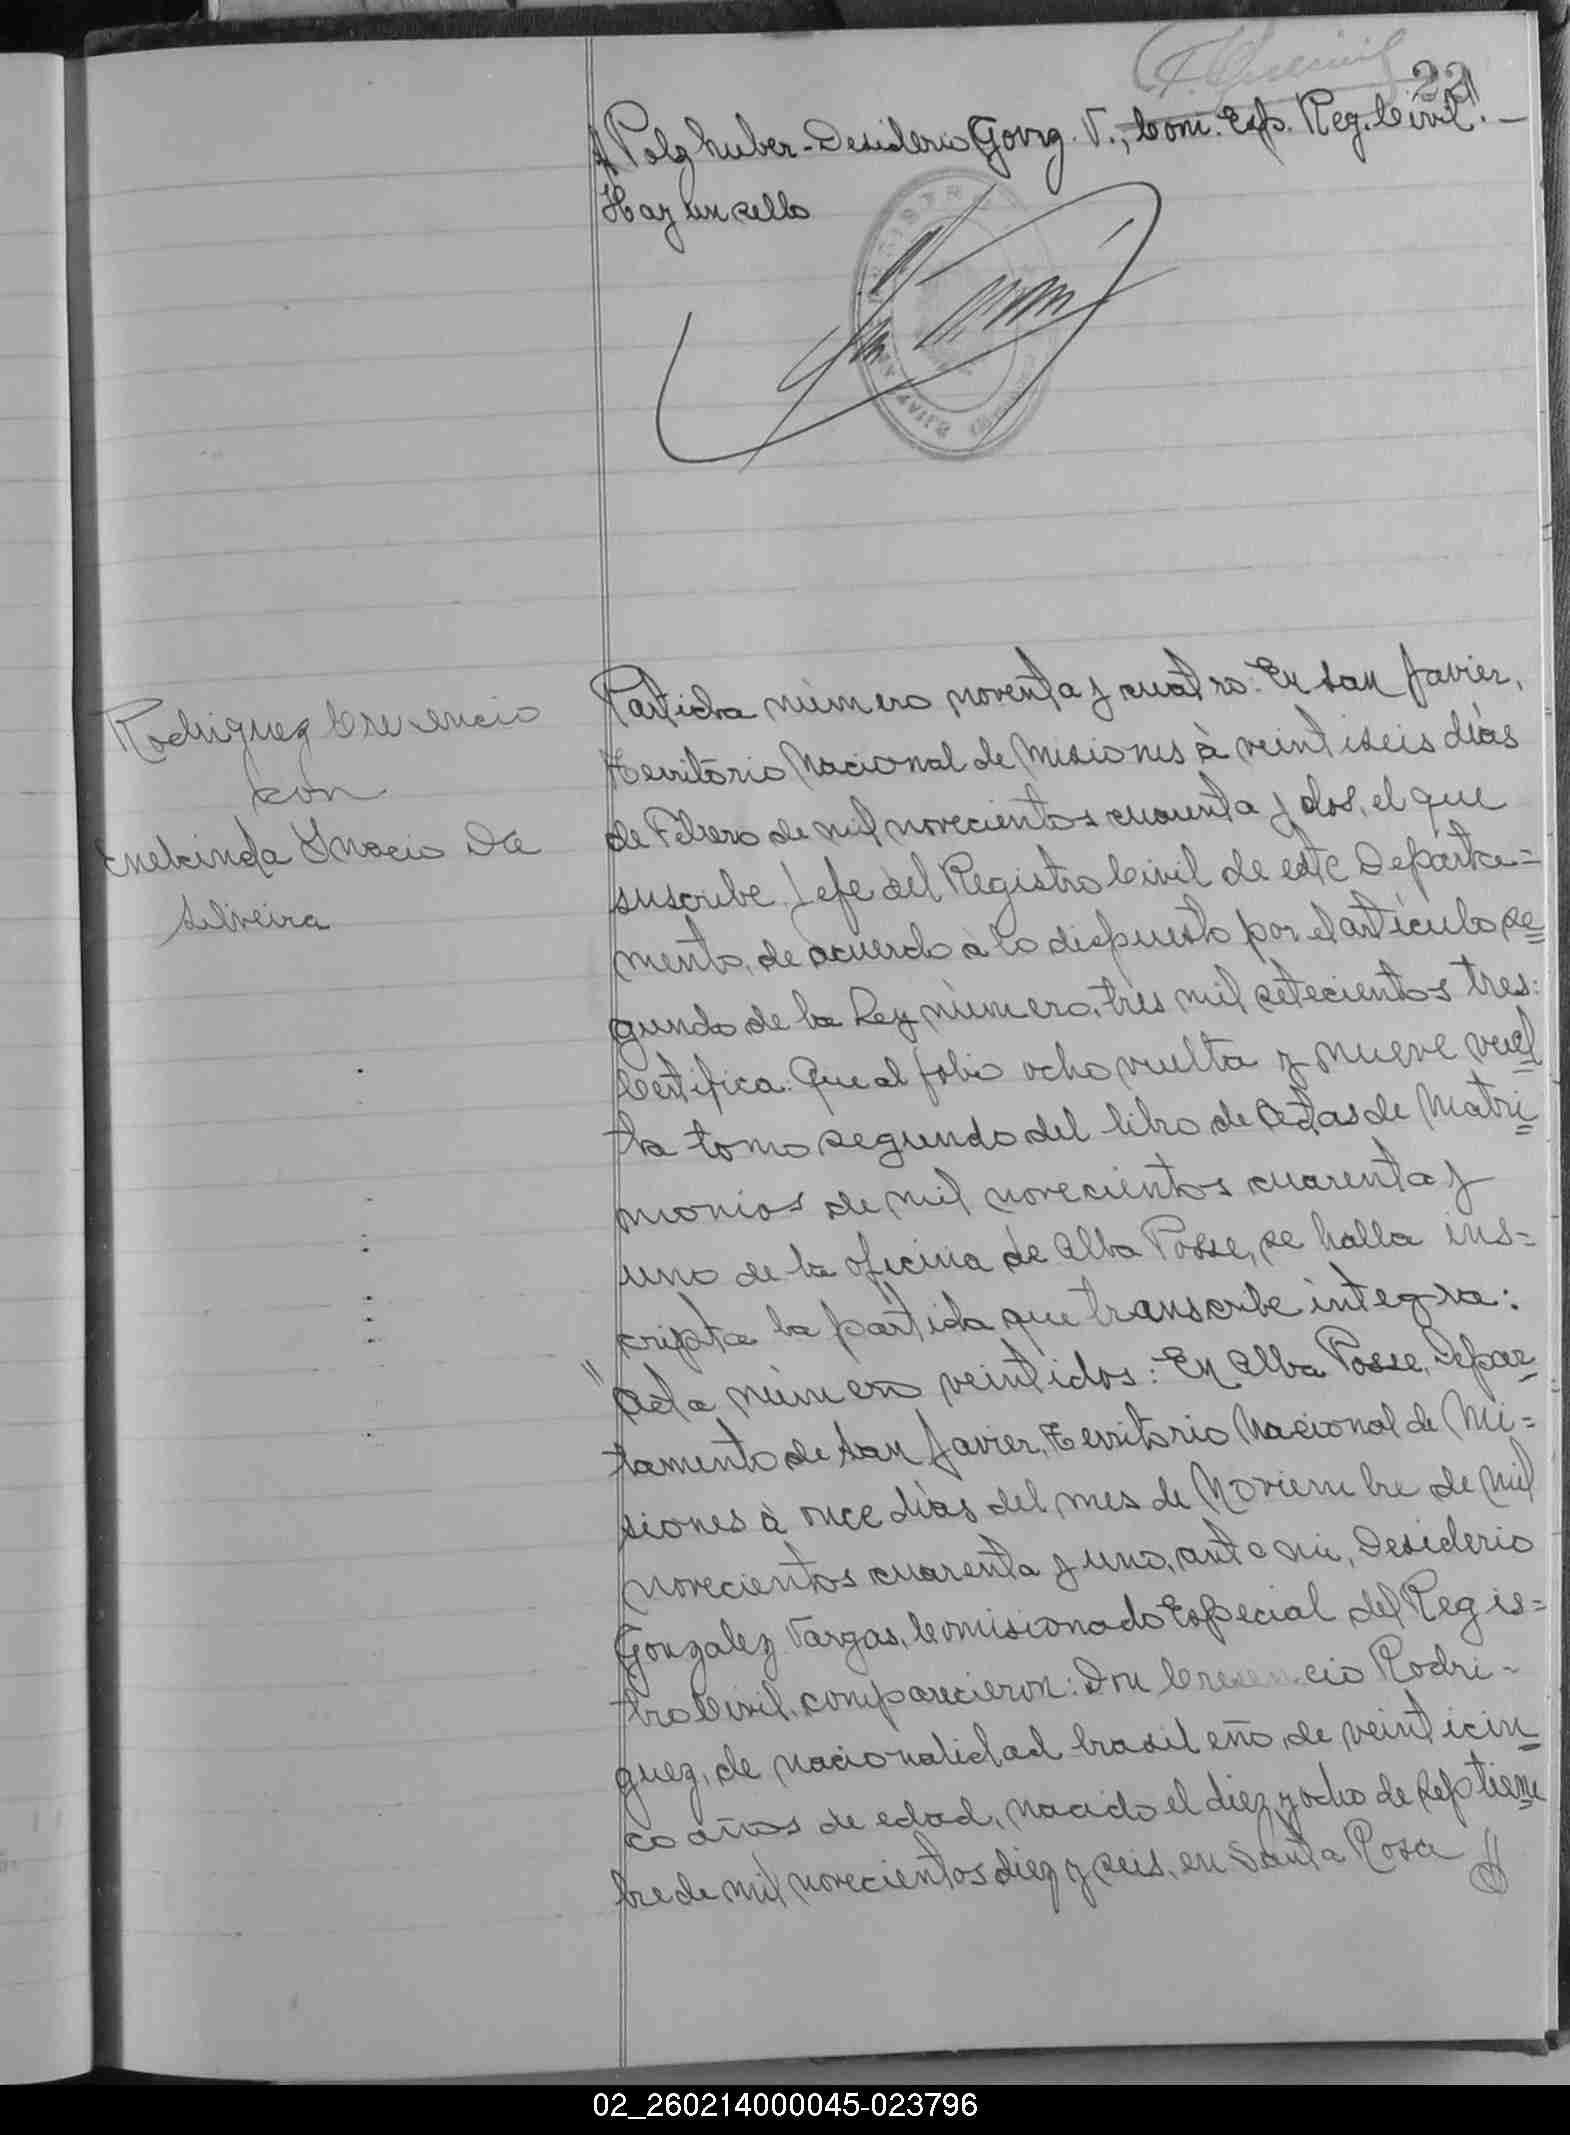 22
A Polzhuber - Desiderio Gonz. V., Com. Esp. Reg. Civil. -
Hay un sello
Rodriguez Cresencio
con
Enelcinda Ynacio Da
Silveira
Partida número noventa y cuatro: En San Javier,
Territorio Nacional de Misiones à veintiseis dias
de Febrero de mil novecientos cuarenta y dos, el que
suscribe Jefe del Registro Civil de este Departa=
mento, de acuerdo a lo dispuesto por el artículo se=
gundo de la Ley número, tres mil setecientos tres:
Certifica: Que al folio ocho vuelta y nueve vuel=
ta tomo segundo del libro de Actas de Matri=
monios de mil novecientos cuarenta y
uno de la oficina de Alba Posse, se halla ins=
cripta la partida que transcribe integra:
"Acta número veintidos: En Alba Posse, Depar=
tamento de San Javier, Territorio Nacional de Mi=
siones à once dias del mes de Noviembre de mil
novecientos cuarenta y uno, ante mi, Desiderio
Gonzalez Vargas, Comisionado Especial del Regis=
tro Civil, comparecieron: Don Cresencio Rodri-
guez, de nacionalidad brasileño, de veinticin=
co años de edad, nacido el diez y ocho de Septiem=
bre de mil novecientos diez y seis, en Santa Rosa
02_260214000045-023796